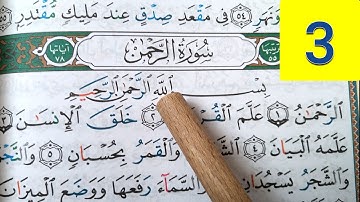 وَنَهَرٍ ٥٤ فِى مَقْعَدِ صِدْقٍ عِندَ مَلِيكٍ مُّقْتَدِرٍ
3
آيَاتُهَا ٧٨
سُورَةُ الرَّحْمٰن
٥٥
بِسْمِ ٱللَّهِ ٱلرَّحْمَٰنِ ٱلرَّحِيمِ
ٱلرَّحْمَٰنُ ١ عَلَّمَ ٱلْقُرْ ٢ خَلَقَ ٱلْإِنسَٰنَ ٣
عَلَّمَهُ ٱلْبَيَانَ ٤ ٱلشَّ وَٱلْقَمَرُ بِحُسْبَانٍ ٥ وَٱلنَّجْمُ
وَٱلشَّجَرُ يَسْجُدَانِ وَٱلسَّمَآءَ رَفَعَهَا وَوَضَعَ ٱلْمِيزَانَ